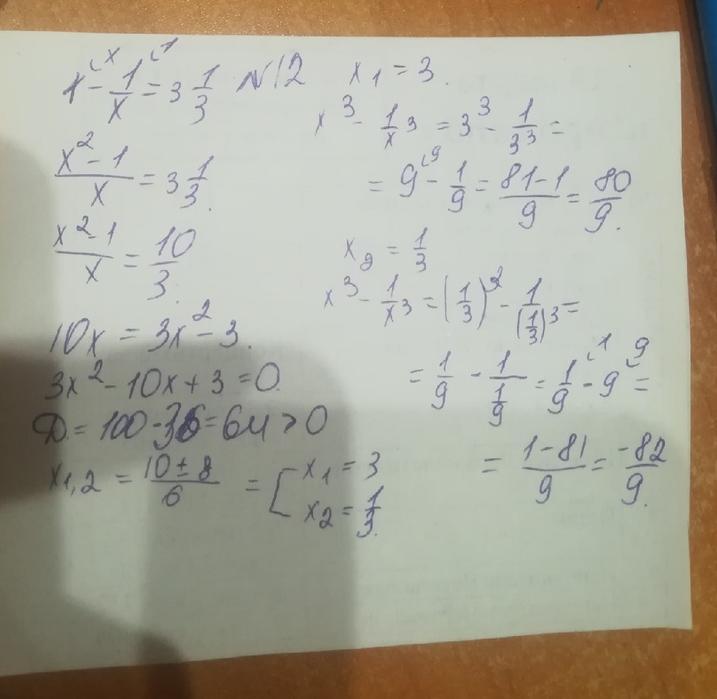 x - 1/x = 3 1/3 №12
(x² - 1)/x = 3 1/3.
(x² - 1)/x = 10/3.
10x = 3x² - 3.
3x² - 10x + 3 = 0.
D = 100 - 36 = 64 > 0
x₁,₂ = (10 ± 8)/6 = [ x₁ = 3
x₂ = 1/3.
x₁ = 3.
x³ - 1/x³ = 3³ - 1/3³ =
= 9 - 1/9 = (81-1)/9 = 80/9.
x₂ = 1/3
x³ - 1/x³ = (1/3)³ - 1/(1/3)³ =
= 1/9 - 1/(1/9) = 1/9 - 9 =
= (1-81)/9 = -82/9.